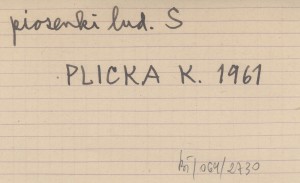 piosenki lud. S
PLICKA K. 1961
/164/2730